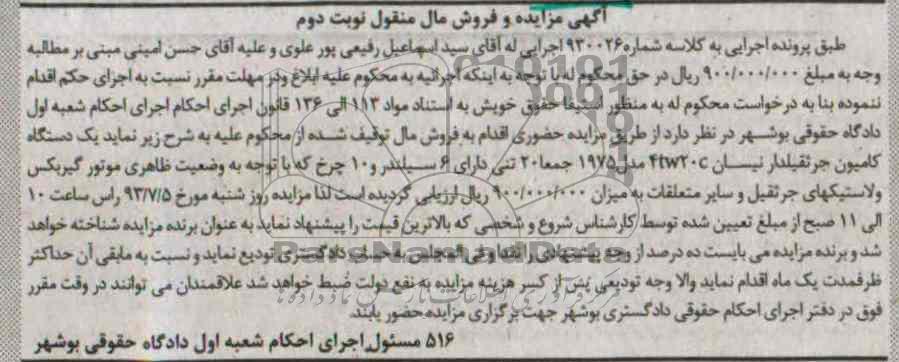 آگهی مزایده و فروش مال منقول نوبت دوم
طبق پرونده اجرایی به کلاسه شماره ۹۳۰۰۲۶ اجرایی له آقای سید اسماعیل رفیعی پور علوی و علیه آقای حسن امینی مبنی بر مطالبه
وجه به مبلغ ۹۰۰/۰۰۰/۰۰۰ ریال در حق محکوم له با توجه به اینکه اجرائیه به محکوم علیه ابلاغ ودر مهلت مقرر نسبت به اجرای حکم اقدام
ننموده بنا به درخواست محکوم له به منظور استیفا حقوق خویش به استناد مواد ۱۱۳ الی ۱۳۶ قانون اجرای احکام اجرای احکام شعبه اول
دادگاه حقوقی بوشهر در نظر دارد از طریق مزایده حضوری اقدام به فروش مال توقیف شده از محکوم علیه به شرح زیر نماید یک دستگاه
کامیون جرثقیلدار نیسان ۴tw۲۰c مدل ۱۹۷۵ جمعا ۲۰ تنی دارای ۶ سیلندر و ۱۰ چرخ که با توجه به وضعیت ظاهری موتور گیربکس
ولاستیکهای جرثقیل و سایر متعلقات به میزان ۹۰۰/۰۰۰/۰۰۰ ریال ارزیابی گردیده است لذا مزایده روز شنبه مورخ ۹۳/۷/۵ راس ساعت ۱۰
الی ۱۱ صبح از مبلغ تعیین شده توسط کارشناس شروع و شخصی که بالاترین قیمت را پیشنهاد نماید به عنوان برنده مزایده شناخته خواهد
شد و برنده مزایده می بایست ده درصد از وجه پیشنهادی را نقدا وفی المجلس به حساب دادگستری تودیع نماید و نسبت به مابقی آن حداکثر
ظرفمدت یک ماه اقدام نماید والا وجه تودیعی پس از کسر هزینه مزایده به نفع دولت ضبط خواهد شد علاقمندان می توانند در وقت مقرر
فوق در دفتر اجرای احکام حقوقی دادگستری بوشهر جهت برگزاری مزایده حضور یابند.
۵۱۶ مسئول اجرای احکام شعبه اول دادگاه حقوقی بوشهر